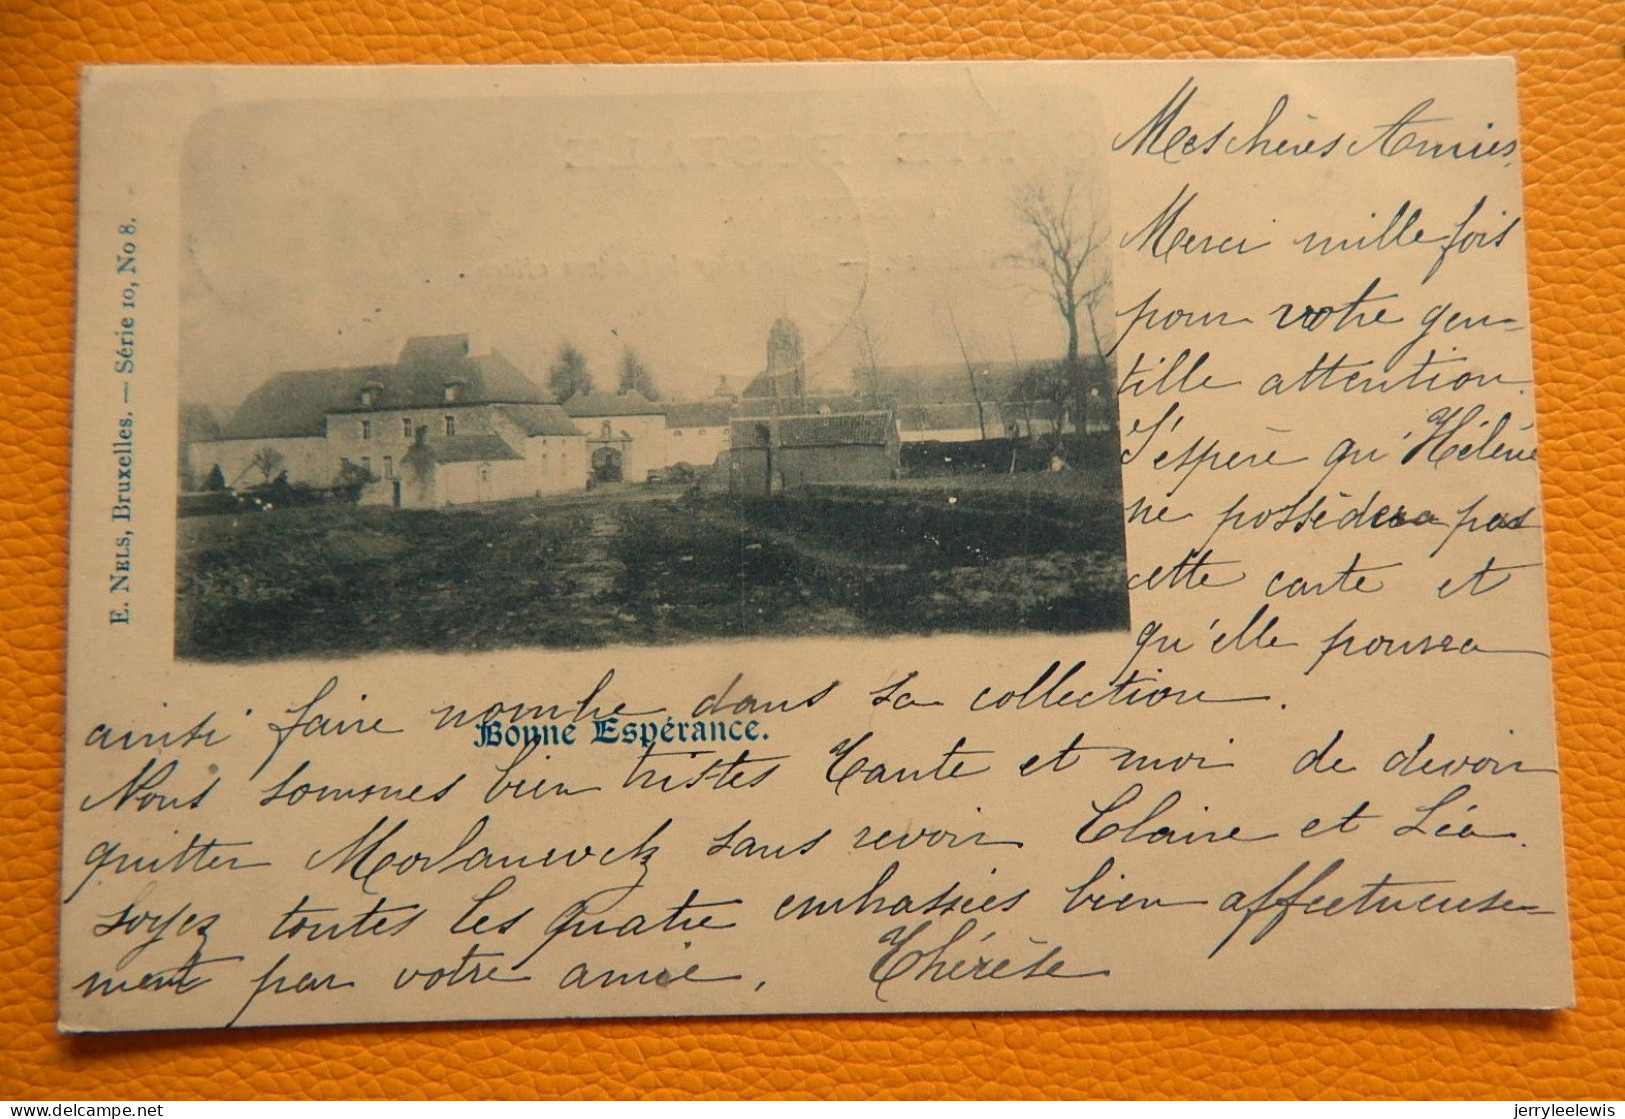 E. NELS, Bruxelles. — Série 10, No 8.
Mes chères Amies,
Merci mille fois
pour votre gen-
tille attention.
J'espère qu'Hélène
ne possèdera pas
cette carte et
qu'elle pourra
ainsi faire nombre dans sa collection.
Bonne Espérance.
Nous sommes bien tristes Tante et moi de devoir
quitter Morlanwelz sans revoir Claire et Léa.
Soyez toutes les quatre embrassées bien affectueuse-
ment par votre amie, Thérèse
delcampe.net
jerryleelewis